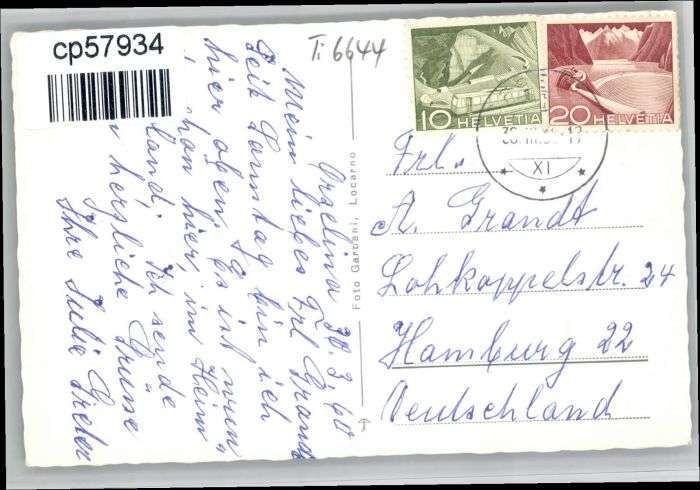 cp57934
Ti 6644
10 HELVETIA
20 HELVETIA
XI
Orselina 30.3.60
Mein liebes Frl Grandt
Seit Sonntag bin ich
hier oben. Es ist
hier, im Heim
Ich sende
herzliche Grüsse
Ihre Julie
Foto Garbani, Locarno
Frl.
A. Grandt
Lohkoppelstr. 24
Hamburg 22
Deutschland